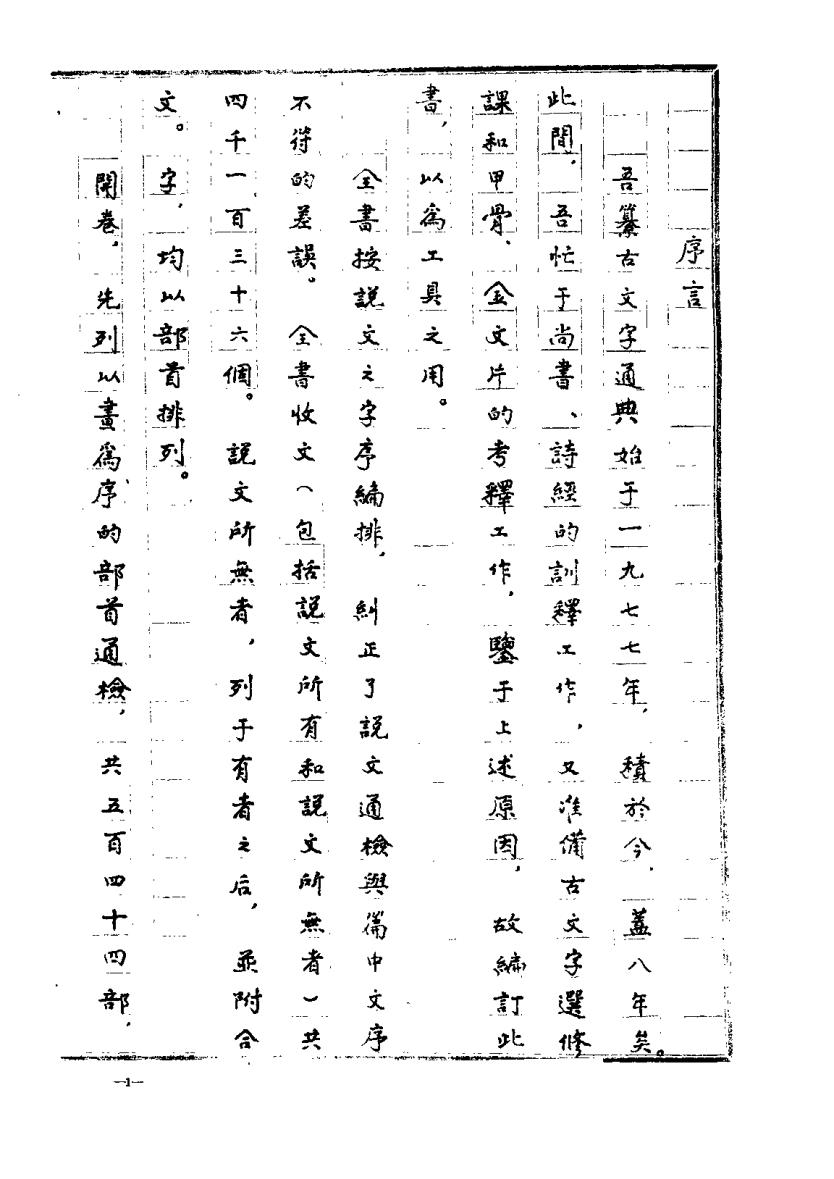 序言
吾纂古文字通典始于一九七七年，積於今，蓋八年矣。
此間，吾忙于尚書、詩經的訓釋工作，又准備古文字選修
課和甲骨、金文片的考釋工作，鑒于上述原因，故編訂此
書，以爲工具之用。
全書按説文之字序編排，糾正了説文通檢與篇中文序
不符的差誤。全書收文（包括説文所有和説文所無者）共
四千一百三十六個。説文所無者，列于有者之后，並附合
文。字，均以部首排列。
開卷，先列以畫爲序的部首通檢，共五百四十四部，
—1—